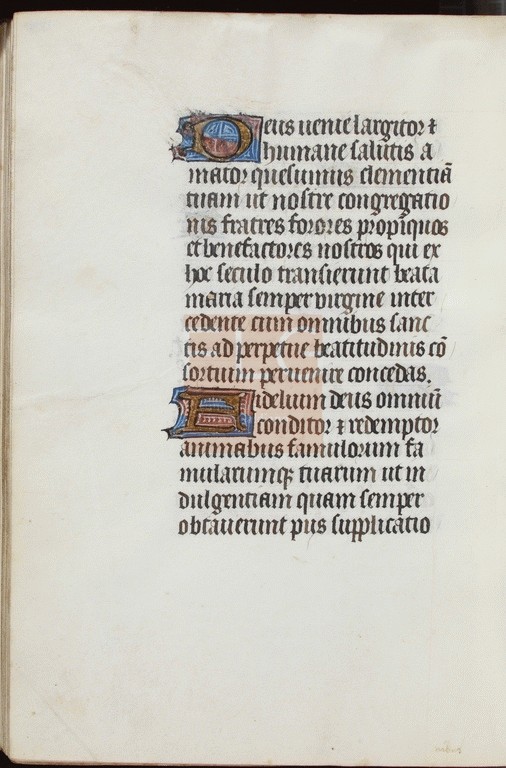 Deus uenie largitor ⁊
humane salutis a
mator quesumus clementiā
tuam ut nostre congregatio
nis fratres sorores propiquos
et benefactores nostros qui ex
hoc seculo transierunt beata
maria semper uirgine inter
cedente cum omnibus sanc
tis ad perpetue beatitudinis cō
sortium peruenire concedas.
Fidelium deus omniū
conditor ⁊ redemptor
animabus famulorum fa
mularumqꝫ tuarum ut in
dulgentiam quam semper
obtauerunt piis supplicatio
nibus